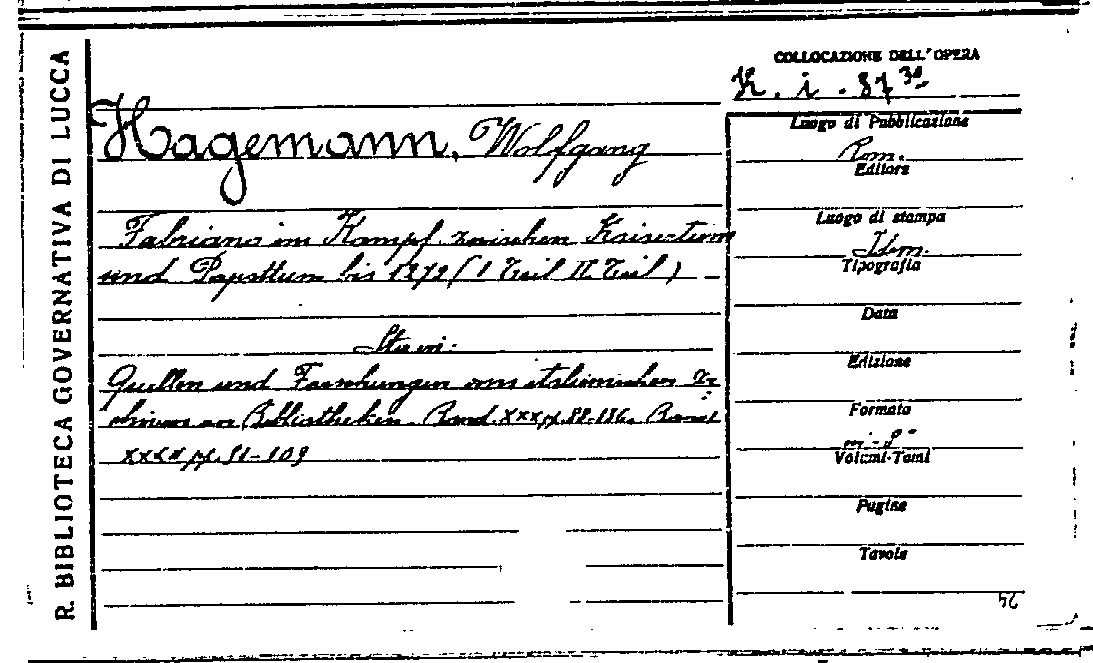 R. BIBLIOTECA GOVERNATIVA DI LUCCA
COLLOCAZIONE DELL'OPERA
Hagemann, Wolfgang
Fabriano im Kampf zwischen Kaisertum
und Papsttum bis 1272 (I Teil II Teil)
Sta in:
Quellen und Forschungen aus italienischen Ar
chiven un Bibliotheken. Band XXX pp. 88-136. Band
XXXX pp. 51-109
Luogo di Pubblicazione
Rom.
Editore
Luogo di stampa
Idem.
Tipografia
Data
Edizione
Formato
in-8°
Volumi-Tomi
Pagine
Tavole